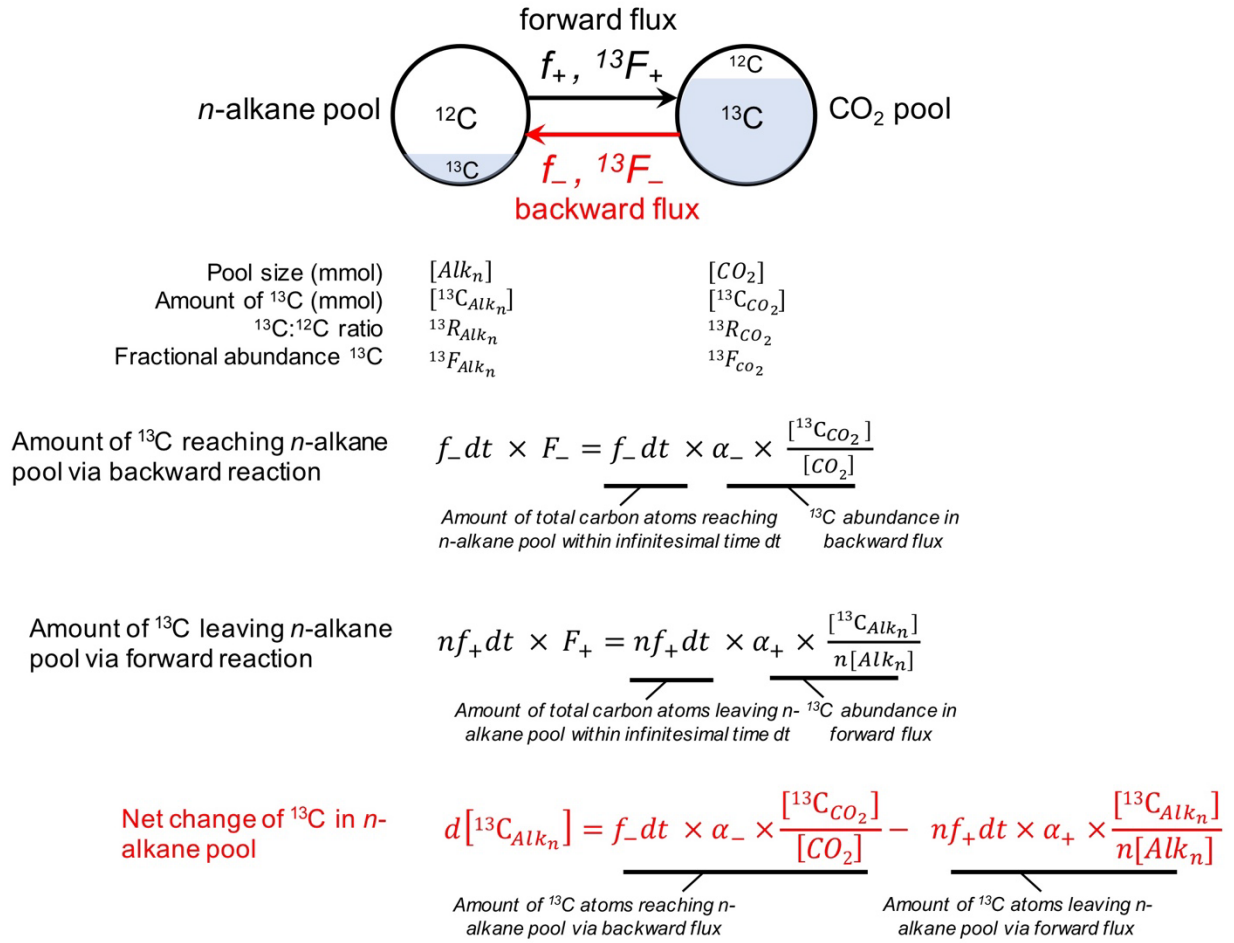 forward flux
f₊, ¹³F₊
n-alkane pool
¹²C
¹³C
¹²C
¹³C
CO₂ pool
f₋, ¹³F₋
backward flux
Pool size (mmol) [Alkₙ] [CO₂]
Amount of ¹³C (mmol) [¹³C_{Alkₙ}] [¹³C_{CO₂}]
¹³C:¹²C ratio ¹³R_{Alkₙ} ¹³R_{CO₂}
Fractional abundance ¹³C ¹³F_{Alkₙ} ¹³F_{CO₂}
Amount of ¹³C reaching n-alkane
pool via backward reaction
f₋dt × F₋ = f₋dt × α₋ × [¹³C_{CO₂}] / [CO₂]
Amount of total carbon atoms reaching
n-alkane pool within infinitesimal time dt
¹³C abundance in
backward flux
Amount of ¹³C leaving n-alkane
pool via forward reaction
nf₊dt × F₊ = nf₊dt × α₊ × [¹³C_{Alkₙ}] / n[Alkₙ]
Amount of total carbon atoms leaving n-
alkane pool within infinitesimal time dt
¹³C abundance in
forward flux
Net change of ¹³C in n-
alkane pool
d[¹³C_{Alkₙ}] = f₋dt × α₋ × [¹³C_{CO₂}] / [CO₂] − nf₊dt × α₊ × [¹³C_{Alkₙ}] / n[Alkₙ]
Amount of ¹³C atoms reaching n-
alkane pool via backward flux
Amount of ¹³C atoms leaving n-
alkane pool via forward flux